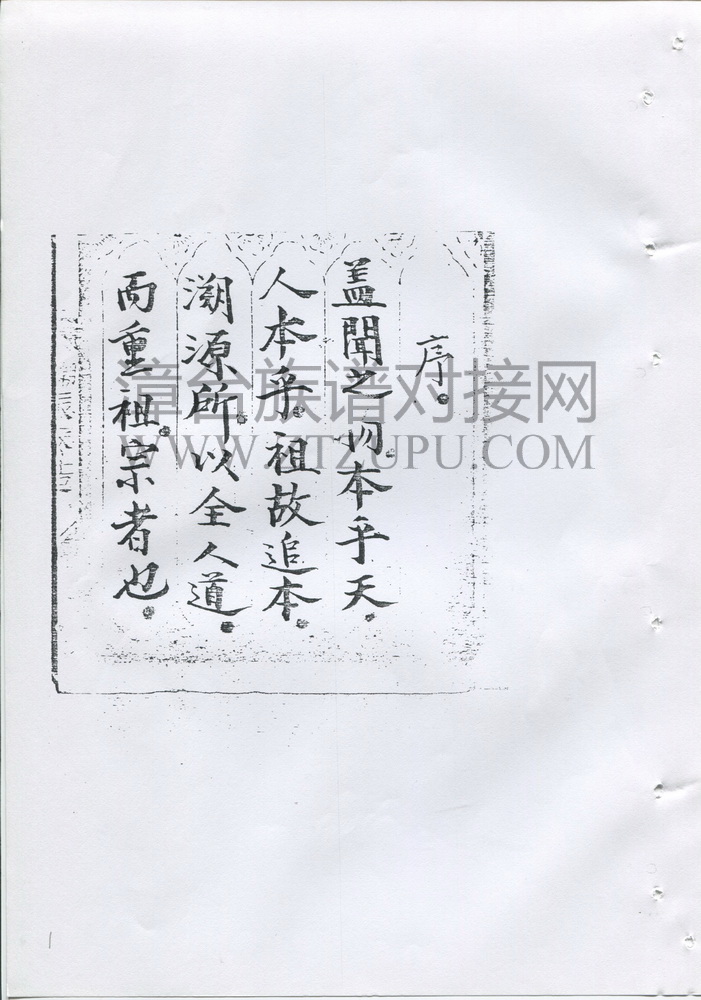 序。
盖聞之。物本乎天。
人本乎。祖故追本。
溯源所。以全人道。
而重祖。宗者也。
漳台族谱对接网
WWW.ZTZUPU.COM
1